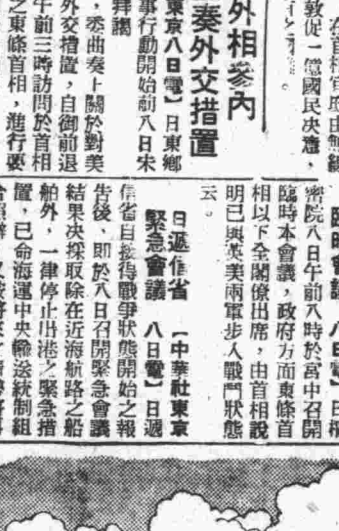 在首相官邸由無線
敦促一億國民決意，
外相參內
奏外交措置
東京八日電】日東鄉
事行動開始前八日未
拜謁
，委曲奏上關於對美
外交措置，自御前退
午前三時訪問於首相
之東條首相，進行要
密院八日午前八時於宮中召開
臨時本會議，政府方面東條首
相以下全閣僚出席，由首相說
明已與英美兩軍步入戰鬥狀態
云。
日遞信省 【中華社東京
緊急會議 八日電】日遞
信省自接得戰爭狀態開始之報
告後、即於八日召開緊急會議
結果決採取除在近海航路之船
舶外，一律停止出港之緊急措
置，已命海運中央輸送統制組